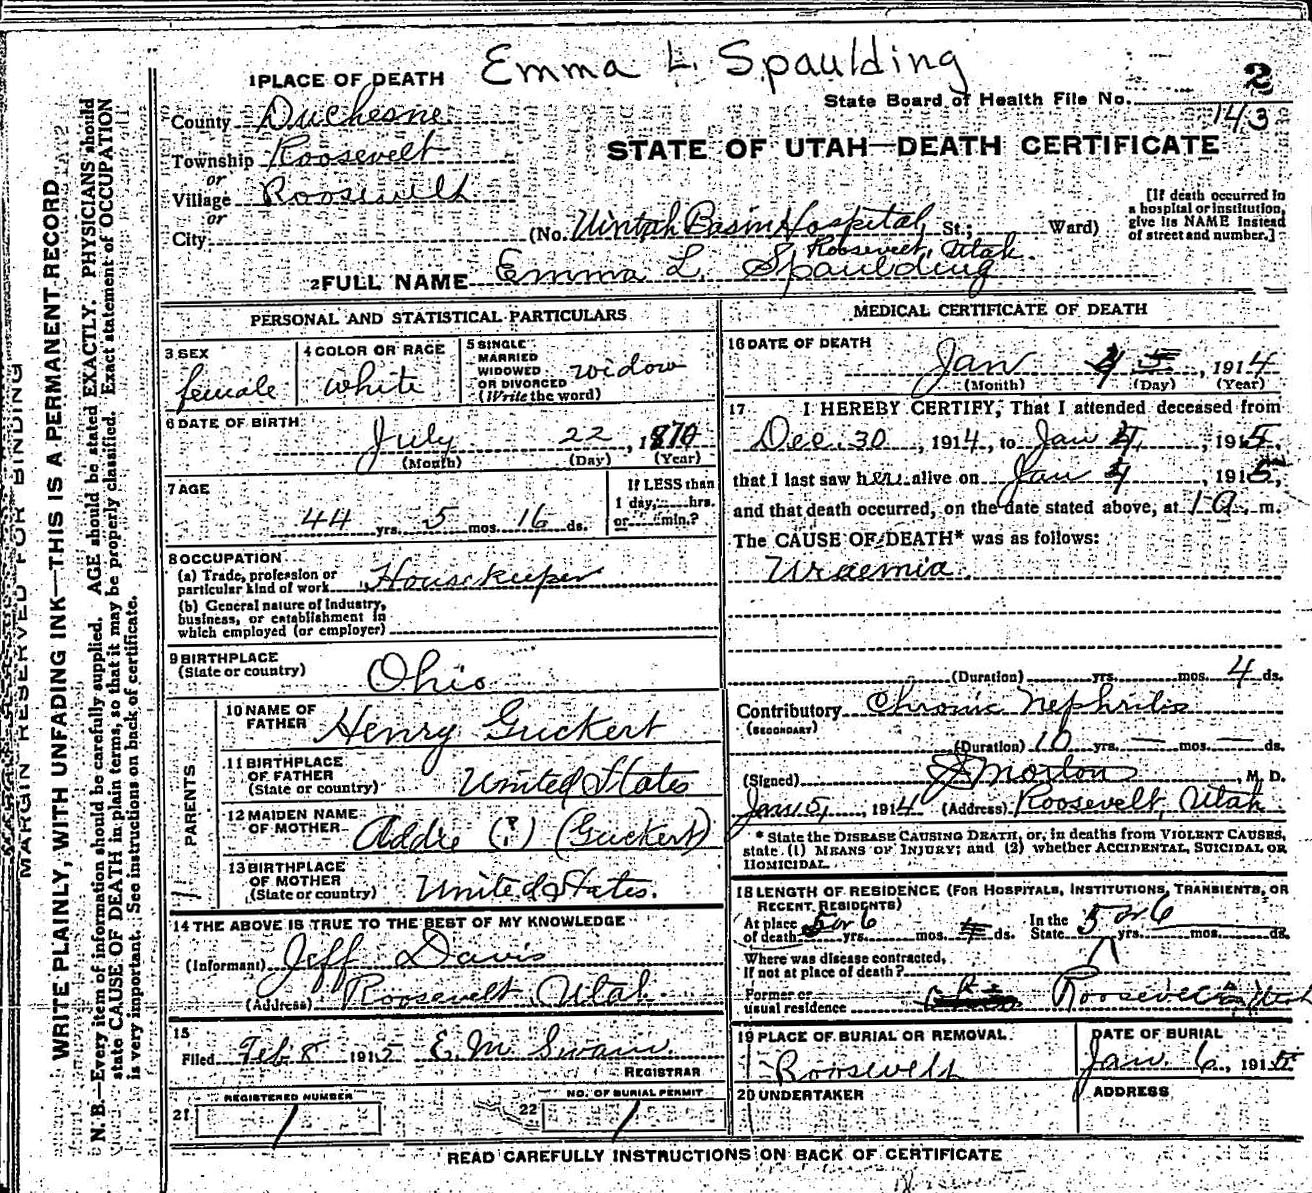 Emma L. Spaulding
1 PLACE OF DEATH
2
State Board of Health File No.
143
County Duchesne
STATE OF UTAH—DEATH CERTIFICATE
Township Roosevelt
or
Village Roosevelt
or
City (No. Uintah Basin Hospital, St.; Ward)
Roosevelt, Utah.
[If death occurred in
a hospital or institution,
give its NAME instead
of street and number.]
2 FULL NAME Emma L. Spaulding
PERSONAL AND STATISTICAL PARTICULARS
3 SEX
female
4 COLOR OR RACE
white
5 SINGLE
MARRIED
WIDOWED
OR DIVORCED
(Write the word)
widow
6 DATE OF BIRTH
July 22, 1870
(Month) (Day) (Year)
7 AGE
44 yrs. 5 mos. 16 ds.
If LESS than
1 day, hrs.
or min.?
8 OCCUPATION
(a) Trade, profession or
particular kind of work Housekeeper
(b) General nature of Industry,
business, or establishment in
which employed (or employer)
9 BIRTHPLACE
(State or country)
Ohio
PARENTS
10 NAME OF
FATHER
Henry Guckert
11 BIRTHPLACE
OF FATHER
(State or country)
United States
12 MAIDEN NAME
OF MOTHER
Addie (?) (Guckert)
13 BIRTHPLACE
OF MOTHER
(State or country)
United States.
14 THE ABOVE IS TRUE TO THE BEST OF MY KNOWLEDGE
(Informant) Jeff Davis
(Address) Roosevelt Utah
15
Filed Feb 8 1915 E. M. Swain
REGISTRAR
21
REGISTERED NUMBER
1
22
NO. OF BURIAL PERMIT
1
MEDICAL CERTIFICATE OF DEATH
16 DATE OF DEATH
Jan 4, 1914
(Month) (Day) (Year)
17 I HEREBY CERTIFY, That I attended deceased from
Dec. 30, 1914, to Jan 4, 1915,
that I last saw her alive on Jan 4, 1915,
and that death occurred, on the date stated above, at 1 a. m.
The CAUSE OF DEATH* was as follows:
Uraemia
(Duration) yrs. mos. 4 ds.
Contributory Chronic Nephritis
(SECONDARY)
(Duration) 10 yrs. — mos. — ds.
(Signed) Morton, M. D.
Jan 5, 1914 (Address) Roosevelt, Utah
* State the DISEASE CAUSING DEATH, or, in deaths from VIOLENT CAUSES,
state (1) MEANS OF INJURY; and (2) whether ACCIDENTAL, SUICIDAL OR
HOMICIDAL.
18 LENGTH OF RESIDENCE (FOR HOSPITALS, INSTITUTIONS, TRANSIENTS, OR
RECENT RESIDENTS)
At place
of death 5 or 6 yrs. mos. ds.
In the
State 5 or 6 yrs. mos. ds.
Where was disease contracted,
If not at place of death?
Former or
usual residence Roosevelt, Utah
19 PLACE OF BURIAL OR REMOVAL
Roosevelt
DATE OF BURIAL
Jan. 6, 1915
20 UNDERTAKER
ADDRESS
READ CAREFULLY INSTRUCTIONS ON BACK OF CERTIFICATE
MARGIN RESERVED FOR BINDING
WRITE PLAINLY, WITH UNFADING INK—THIS IS A PERMANENT RECORD
N. B.—Every item of information should be carefully supplied. AGE should be stated EXACTLY. PHYSICIANS should
state CAUSE OF DEATH in plain terms, so that it may be properly classified. Exact statement of OCCUPATION
is very important. See instructions on back of certificate.